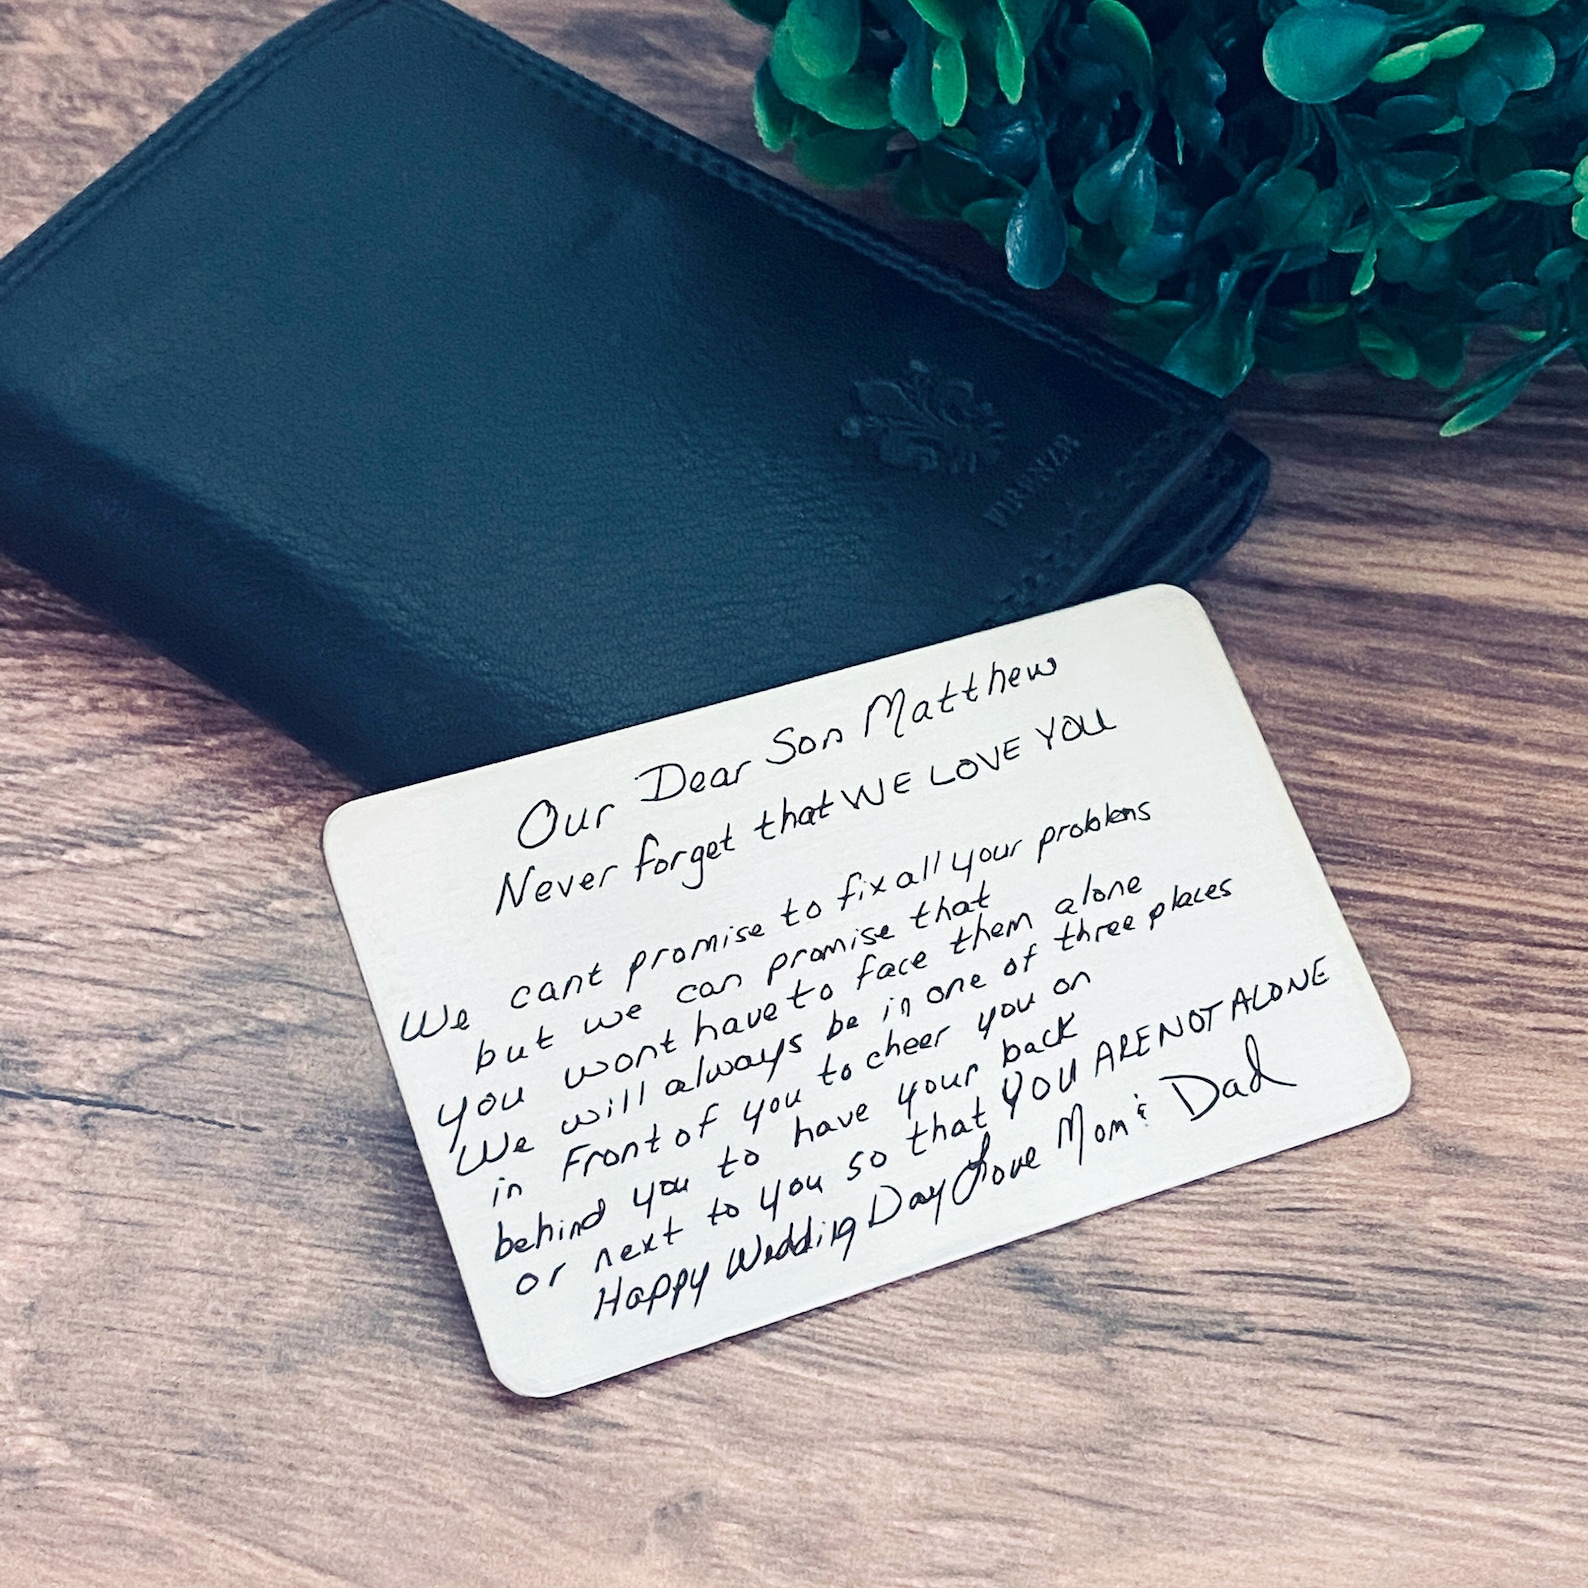 FIRENZE
Our Dear Son Matthew
Never forget that WE LOVE YOU
We cant promise to fix all your problems
but we can promise that
you wont have to face them alone
We will always be in one of three places
in Front of you to cheer you on
behind you to have your back
or next to you so that YOU ARE NOT ALONE
Happy Wedding Day Love Mom & Dad